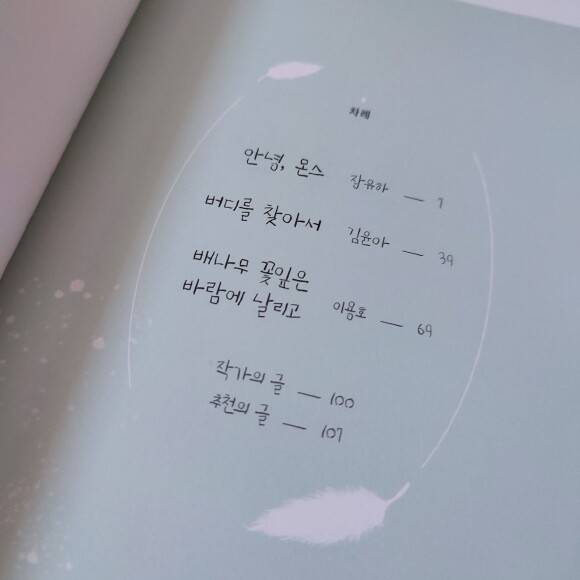 차례
안녕, 몬스 장유하 — 7
버디를 찾아서 김윤아 — 39
배나무 꽃잎은
바람에 날리고 이용호 — 69
작가의 글 — 100
추천의 글 — 107